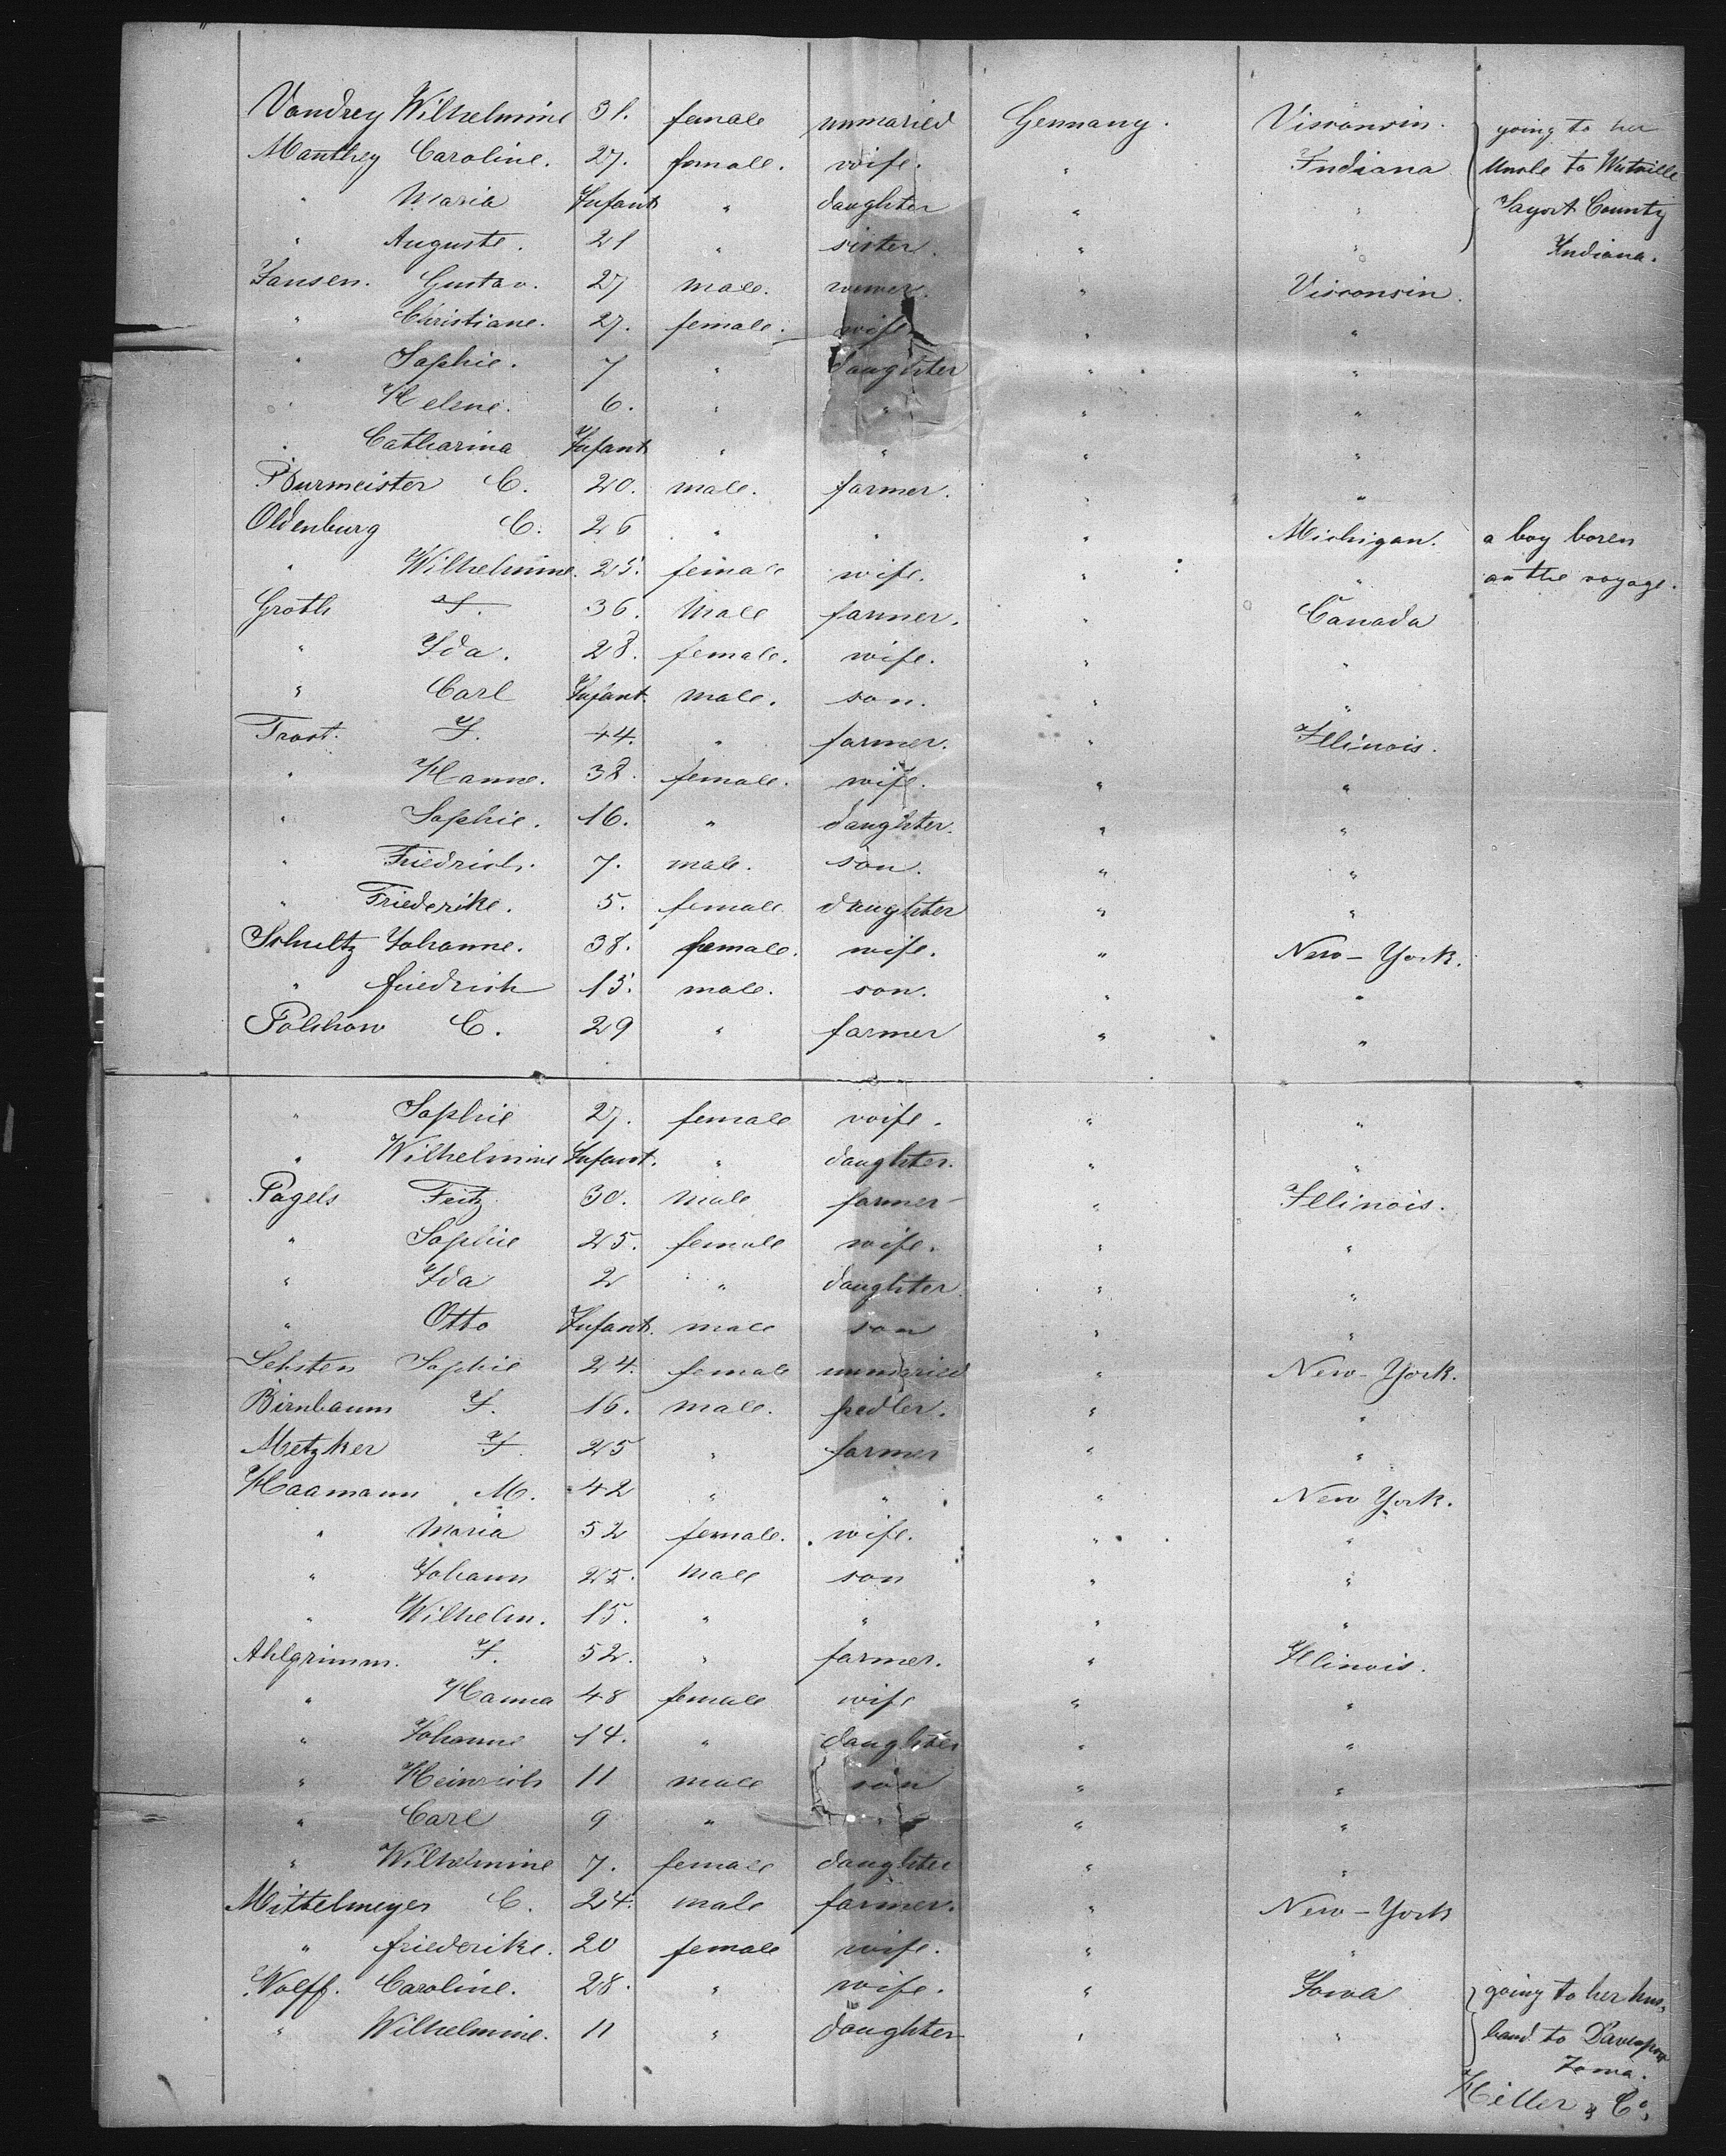 Vandrey Wilhelmine 31. female unmaried Germany. Visconsin. going to her
Manthey Caroline. 27. female. wife. " Indiana Unkle to
" Maria Infant " daughter " " County
" Auguste. 21 " sister. " " Indiana.
Jansen. Gustav. 27 male. " Visconsin.
" Christiane. 27. female. wife " "
" Sophie. 7 " daughter " "
" Helene. 6. " " " "
" Catharina Infant " " " "
Burmeister C. 20. male. farmer. " "
Oldenburg C. 26 " " " Michigan. a boy boren
" Wilhelmine. 25. female wife. " " on the voyage.
Groth J. 36. Male farmer. " Canada
" Ida. 28. female. wife. " "
" Carl Infant. male. son. " "
Trost. J. 44. " farmer. " Illinois.
" Hanne. 38. female. wife. " "
" Sophie. 16. " daughter. " "
" Friedrich. 7. male. son. " "
" Friederike. 5. female daughter " "
Schultz Johanne. 38. female. wife. " New-York.
" friedrich 13. male. son. " "
Polchow C. 29 " farmer " "
" Sophie 27. female wife. " "
" Wilhelmine Infant. " daughter. " "
Pagels Fritz 30. male farmer " Illinois.
" Sophie 25. female wife. " "
" Ida 2 " daughter. " "
" Otto Infant. male son " "
Lehsten Sophie 24. female unmaried " New-York.
Birnbaum J. 16. male. pedler. " "
Metzker J. 25 " farmer " "
Haamann M. 42 " " " New York.
" Maria 52 female. wife. " "
" Johann 25. male son " "
" Wilhelm. 15. " " " "
Ahlgrimm. J. 52. " farmer. " Illinois.
" Hanna 48 female wife " "
" Johanne 14. " daughter " "
" Heinrich 11 male son " "
" Carl 9 " " " "
" Wilhelmine 7. female daughter " "
Mittelmeyer C. 24. male farmer. " New-York
" friederike. 20 female wife. " "
Wolff. Caroline. 28. " wife. " Iowa going to her hus-
" Wilhelmine. 11 " daughter " " band to Davenport
Iowa.
Heller & Co.